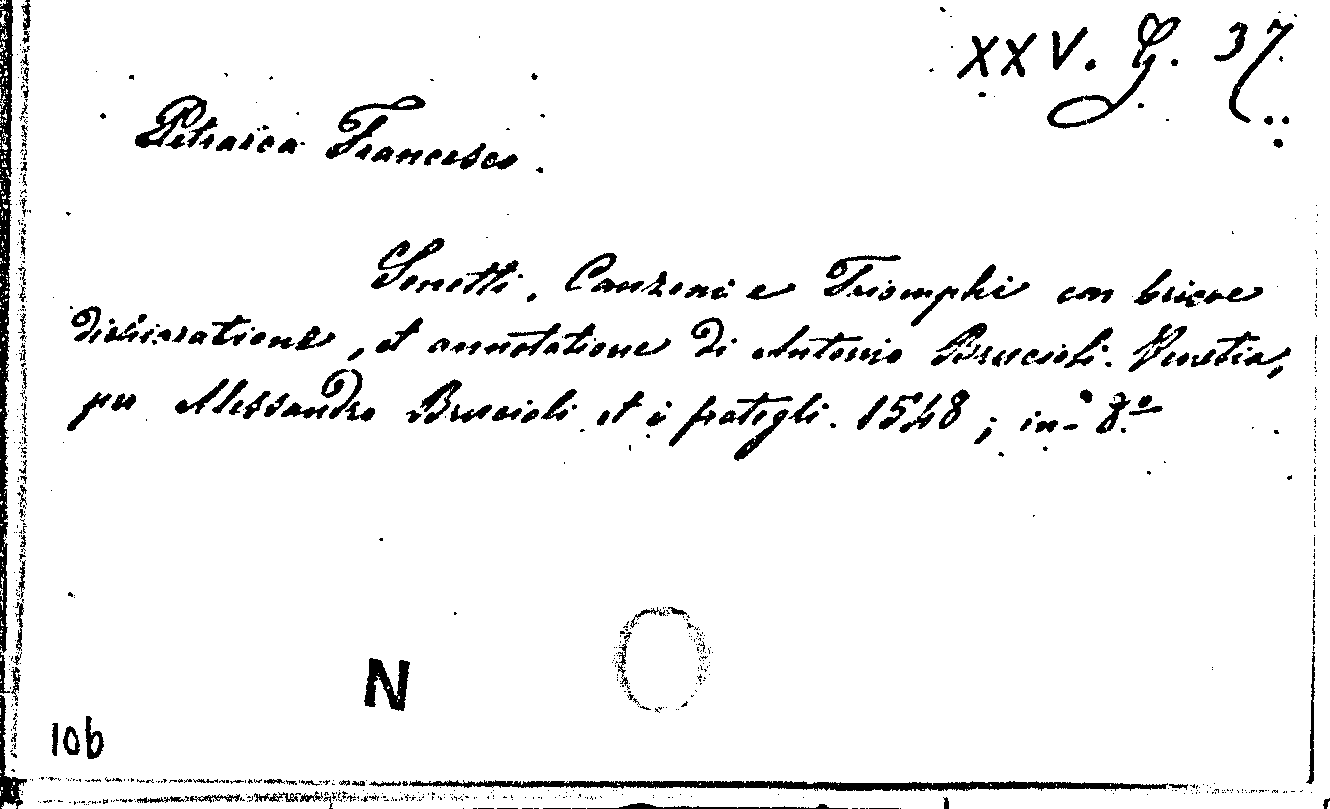 XXV. G. 37.
Petrarca Francesco.
Sonetti, Canzoni e Triomphi con brieve
dichiaratione, et annotatione di Antonio Brucioli. Venetia,
per Alessandro Brucioli et i frategli. 1548; in-8.º
N
10b